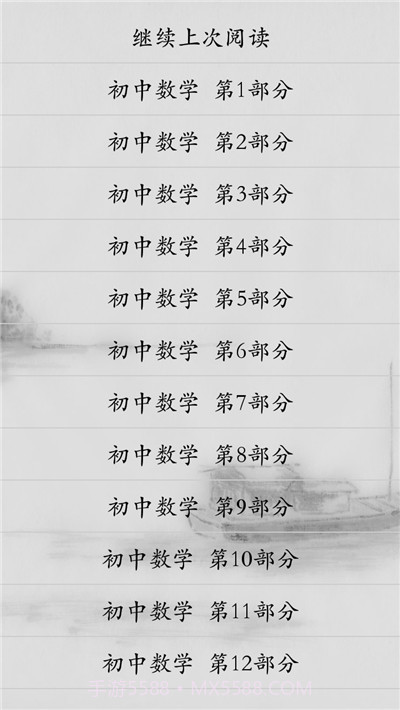 继续上次阅读
初中数学 第1部分
初中数学 第2部分
初中数学 第3部分
初中数学 第4部分
初中数学 第5部分
初中数学 第6部分
初中数学 第7部分
初中数学 第8部分
初中数学 第9部分
初中数学 第10部分
初中数学 第11部分
初中数学 第12部分
手游5588·MX5588.COM